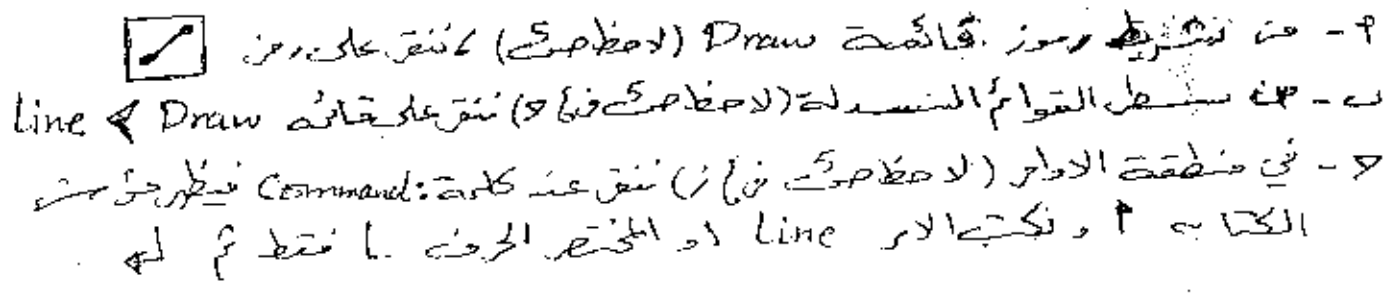 أ - من شريط رموز قائمة Draw (لاحظ ص) ننقر على رمز
ب - من سطر القوائم المنسدلة (لاحظ ص) ننقر على قائمة Draw > Line
ح - في منطقة الاوامر (لاحظ ص) ننقر عند كلمة Command: فيظهر مؤشر
الكتابة I و نكتب الامر Line او المختصر الحرف L فقط ثم